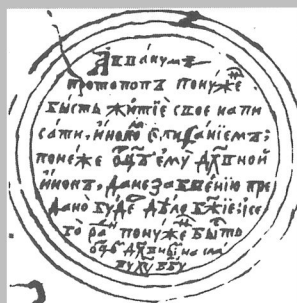 Аввакумъ
протопопъ понуже҆
бысть житїѐ свое напи
сати, и҆нокѡ Е҆пиѳа́нїемъ;
поне́же ѻц҃ъ е҆му дх҃о́вной
и҆нокъ, да не забвению пре
дано̀ бу́де дѣло бж҃їе; и сѐ
го̀ ра понуже бы́ть
ѻц҃ъ дх҃о́вным на сла
ву хр҃ту бг҃у